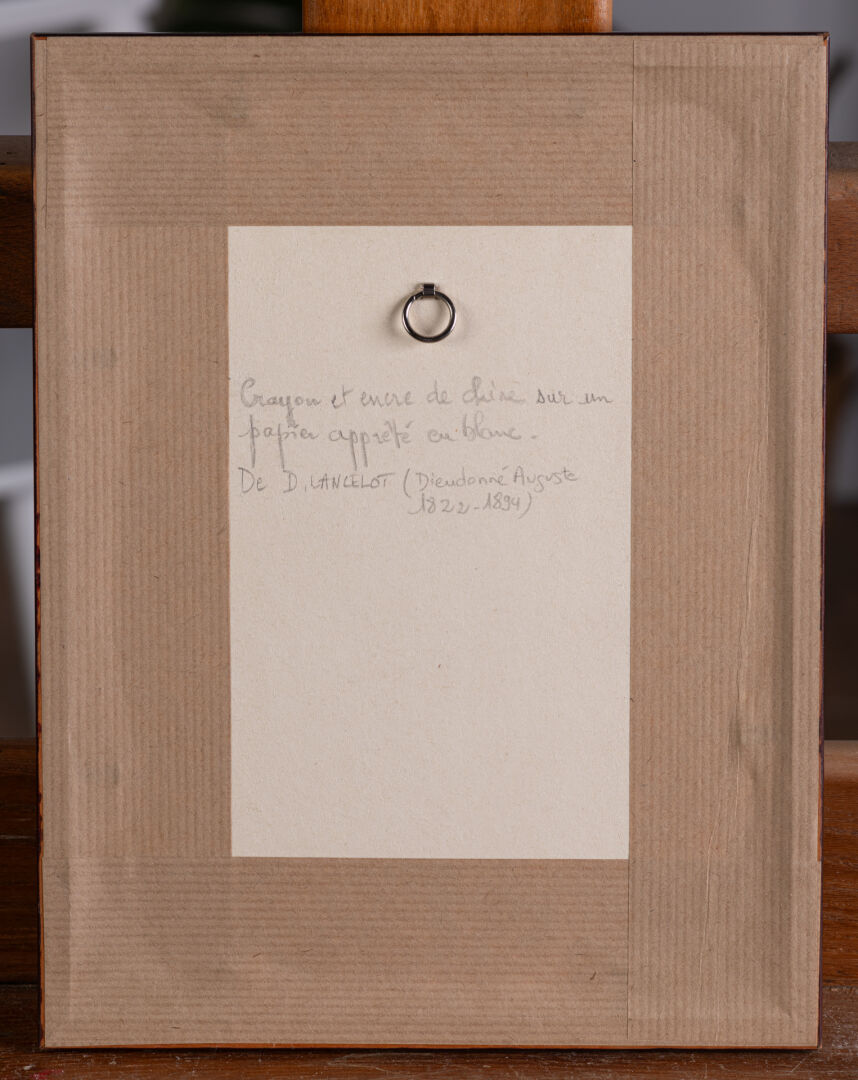 Crayon et encre de chine sur un
papier apprêté en blanc.
De D. LANCELOT (Dieudonné Auguste
1822-1894)